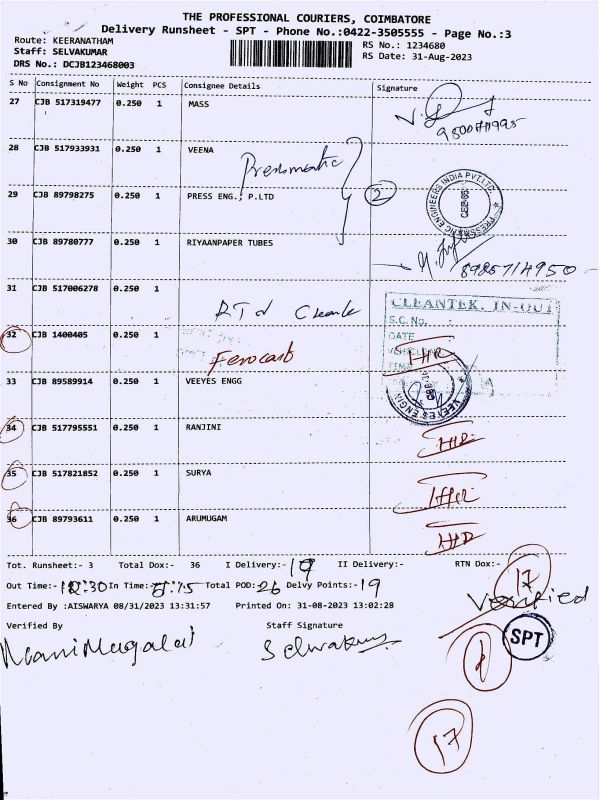 THE PROFESSIONAL COURIERS, COIMBATORE
Delivery Runsheet - SPT - Phone No.:0422-3505555 - Page No.:3
Route: KEERANATHAM
RS No.: 1234680
Staff: SELVAKUMAR
RS Date: 31-Aug-2023
DRS No.: DCJB123468003
S No Consignment No Weight PCS Consignee Details Signature
27 CJB 517319477 0.250 1 MASS
28 CJB 517933931 0.250 1 VEENA
Pressmatic
29 CJB 89798275 0.250 1 PRESS ENG., P.LTD 2
30 CJB 89780777 0.250 1 RIYAANPAPER TUBES
8925714950
31 CJB 517006278 0.250 1
CLEANTEK. IN-OUT
S.C. No. :
DATE
32 CJB 1400405 0.250 1
Ferocast
33 CJB 89589914 0.250 1 VEEYES ENGG
VEEYES ENGIN
34 CJB 517795551 0.250 1 RANJINI
35 CJB 517821852 0.250 1 SURYA
36 CJB 89793611 0.250 1 ARUMUGAM
Tot. Runsheet:- 3 Total Dox:- 36 I Delivery:- 19 II Delivery:- RTN Dox:- 17
Out Time:- 12:30 In Time:- Total POD:- 26 Delvy Points:- 19
Verified
Entered By :AISWARYA 08/31/2023 13:31:57 Printed On: 31-08-2023 13:02:28
Verified By Staff Signature
SPT
Selvakumar
17